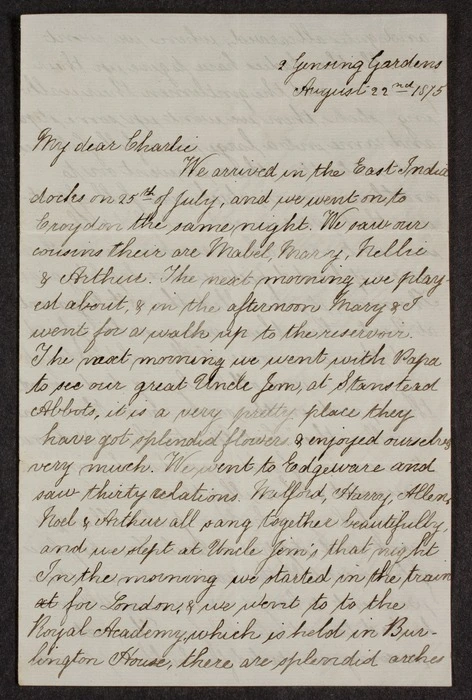 2 Gensing Gardens
August 22nd 1875
My dear Charlie
We arrived in the East India
docks on 25th of July, and we went on to
Croydon the same night. We saw our
cousins their are Mabel, Mary, Nellie
& Arthur. The next morning we play-
ed about, & in the afternoon Mary & I
went for a walk up to the reservoir.
The next morning we went with Papa
to see our great Uncle Jem, at Stanstead
Abbots, it is a very pretty place they
have got splendid flowers & enjoyed ourselves
very much. We went to Edgeware and
saw thirty relations. Welford, Harry, Allen,
Noel & Arthur all sang together beautifully,
and we slept at Uncle Jem's that night
In the morning we started in the train
at for London, & we went to to the
Royal Academy, which is held in Bur-
lington House, there are splendid arches